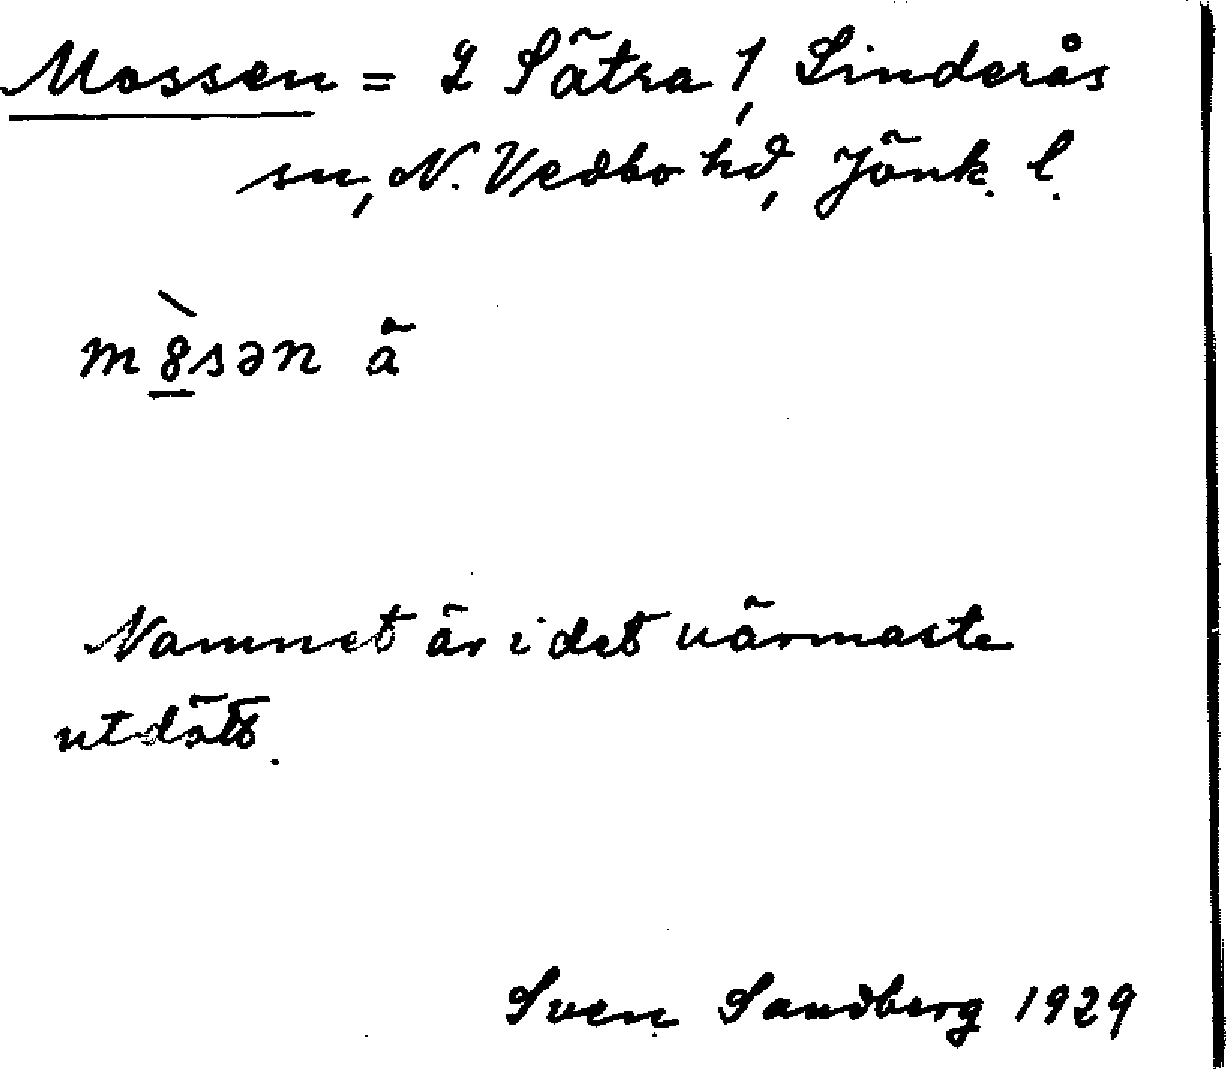 Mossen = 2 Sätra 1, Linderås
sn, N. Vedbo hd, Jönk. l.
m8̀sən ä
Namnet är i det närmaste
utdött.
Sven Sandberg 1929